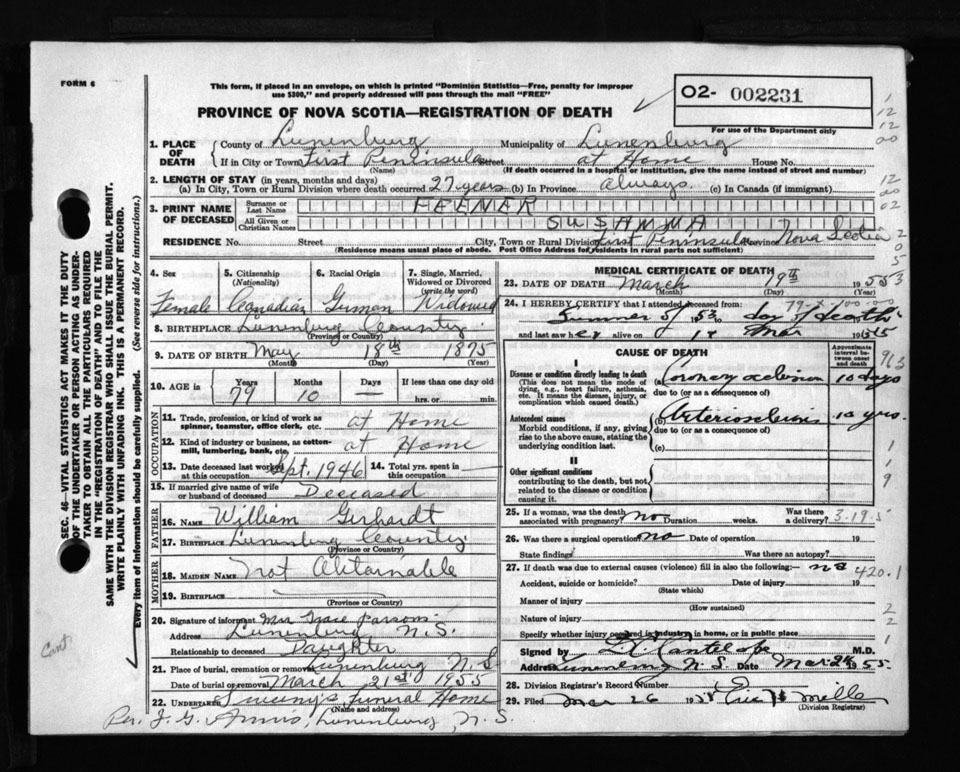 FORM 6
This form, if placed in an envelope, on which is printed "Dominion Statistics—Free, penalty for improper
use $300," and properly addressed will pass through the mail "FREE"
PROVINCE OF NOVA SCOTIA—REGISTRATION OF DEATH
O2- 002231
For use of the Department only
1. PLACE OF DEATH County of Lunenburg Municipality of Lunenburg
If in City or Town First Peninsula Street at Home House No.
(Name) (If death occurred in a hospital or institution, give the name instead of street and number)
2. LENGTH OF STAY (in years, months and days)
(a) In City, Town or Rural Division where death occurred 27 years (b) In Province always (c) In Canada (if immigrant)
3. PRINT NAME OF DECEASED Surname or Last Name FEENER
All Given or Christian Names SUSANNA
RESIDENCE No. Street City, Town or Rural Division First Peninsula Province Nova Scotia
(Residence means usual place of abode. Post Office Address for residents in rural parts not sufficient)
SEC. 46—VITAL STATISTICS ACT MAKES IT THE DUTY
OF THE UNDERTAKER OR PERSON ACTING AS UNDER-
TAKER TO OBTAIN ALL THE PARTICULARS REQUIRED
IN THE "REGISTRATION OF DEATH" AND TO FILE THE
SAME WITH THE DIVISION REGISTRAR WHO SHALL ISSUE THE BURIAL PERMIT.
WRITE PLAINLY WITH UNFADING INK. THIS IS A PERMANENT RECORD.
Every item of information should be carefully supplied. (See reverse side for instructions.)
4. Sex 5. Citizenship (Nationality) 6. Racial Origin 7. Single, Married, Widowed or Divorced (write the word)
Female Canadian German Widowed
8. BIRTHPLACE Lunenburg County
(Province or County)
9. DATE OF BIRTH May 18th 1875
(Month) (Day) (Year)
10. AGE in Years Months Days If less than one day old
79 10 — hrs. or min.
OCCUPATION
11. Trade, profession, or kind of work as spinner, teamster, office clerk, etc. at Home
12. Kind of industry or business, as cotton-mill, lumbering, bank, etc. at Home
13. Date deceased last worked at this occupation Sept. 1946 14. Total yrs. spent in
15. If married give name of wife or husband of deceased Deceased
FATHER
16. NAME William Gerhardt
17. BIRTHPLACE Lunenburg County
(Province or County)
MOTHER
18. MAIDEN NAME Not Obtainable
19. BIRTHPLACE
(Province or County)
20. Signature of informant Mrs Grace Parsons
Address Lunenburg N.S.
Relationship to deceased Daughter
21. Place of burial, cremation or removal Lunenburg N.S.
Date of burial or removal March 21st 1955
22. UNDERTAKER Sweeny's Funeral Home
(Name and address)
Per. J. G. Lunenburg, N.S.
MEDICAL CERTIFICATE OF DEATH
23. DATE OF DEATH March 19 55
(Month) (Day) (Year)
24. I HEREBY CERTIFY that I attended deceased from:
Summer of 1953 to day of death
and last saw her alive on 18 Mar 1955
CAUSE OF DEATH Approximate interval between onset and death
I
Disease or condition directly leading to death
(This does not mean the mode of dying, e.g., heart failure, asthenia, etc. It means the disease, injury, or complication which caused death.)
(a) Coronary occlusion 10 days
due to (or as a consequence of)
Antecedent causes
Morbid conditions, if any, giving rise to the above cause, stating the underlying condition last.
(b) Arteriosclerosis 10 yrs.
due to (or as a consequence of)
(c)
II
Other significant conditions
contributing to the death, but not related to the disease or condition causing it.
25. If a woman, was the death associated with pregnancy? no Duration weeks. Was there a delivery?
3-19-5
26. Was there a surgical operation? no Date of operation 19
State findings Was there an autopsy?
27. If death was due to external causes (violence) fill in also the following:— no
420.1
Accident, suicide or homicide? Date of injury 19
(State which)
Manner of injury
(How sustained)
Nature of injury
Specify whether injury occurred in industry in home, or in public place
Signed by Cantelope M.D.
Address Lunenburg N.S. Date Mar 1955
28. Division Registrar's Record Number
29. Filed Mar 26 19
(Division Registrar)